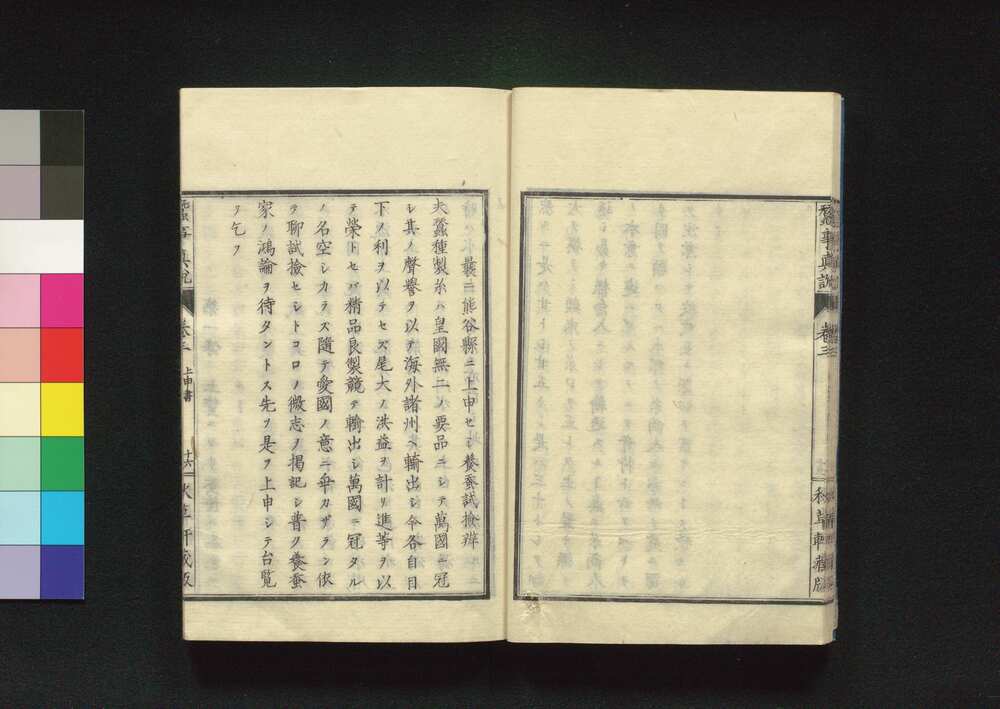 蚕事真説
卷三
秋草軒蔵版
曩ニ熊谷縣ニ上申セシ養蚕試撿辨
夫蚕種製糸ハ皇國無二ノ要品ニシテ萬國ニ冠
シ其ノ聲譽ヲ以テ海外諸州ヘ輸出シ今各自目
下ノ利ヲ以テセズ尾大ノ洪益ヲ計リ進等ヲ以
テ榮トセバ精品良製競テ輸出シ萬國ニ冠タル
ノ名空シカラズ隨テ愛國ノ意ニ乖カザラン依
テ聊試撿セシトコロノ微志ヲ掲記シ普ク養蚕
家ノ鴻論ヲ待タントス先ツ是ヲ上申シテ台覧
ヲ乞フ
卷三
上申書
十六